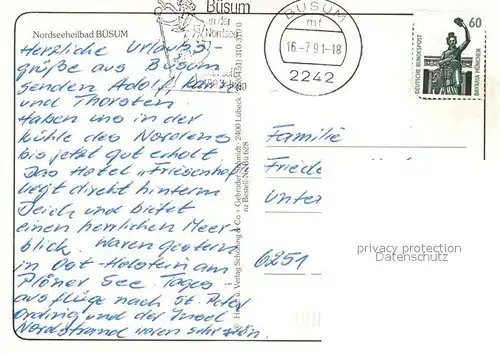 Nordseeheilbad BÜSUM
Herzliche Urlaubs-
grüße aus Büsum
senden Adolf, Karin
und Thorsten.
Haben uns in der
Kühle des Nordens
bis jetzt gut erholt.
Das Hotel "Friesenhof"
liegt direkt hinterm
Deich und bietet
einen herrlichen Meer-
blick. Waren gestern
in Ost-Holstein am
Plöner See. Tages-
ausflüge nach St. Peter
Ording und der Insel
Nordstrand waren sehr schön.
Büsum
in der
Nordsee
BÜSUM
mf
16.-7.91-18
2242
60
DEUTSCHE BUNDESPOST
BAVARIA MÜNCHEN
Verlag Schöning & Co + Gebrüder Schmidt · 2400 Lübeck
Familie
Friede
Unter
6251
privacy protection
Datenschutz